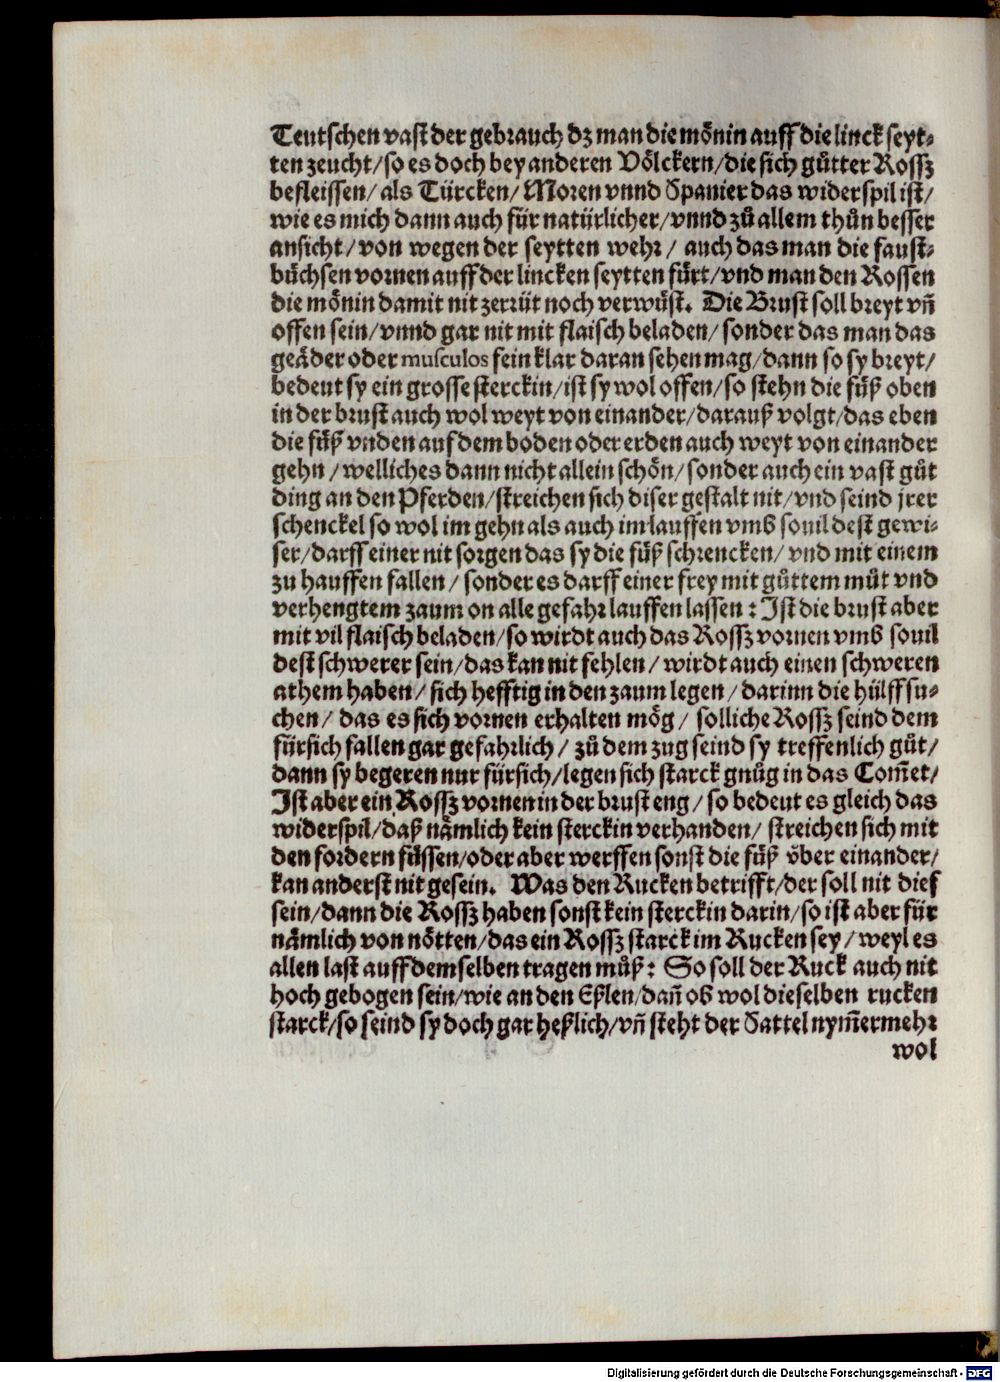 Teutschen vast der gebrauch dz man die mönin auff die linck seyt⸗
ten zeucht/so es doch bey anderen Völckern/die sich gůtter Rossz
befleissen/ als Türcken/ Moren vnnd Spanier das widerspil ist/
wie es mich dann auch für natürlicher/vnnd zů allem thůn besser
ansicht/von wegen der seytten wehr/ auch das man die faust⸗
büchsen vornen auff der lincken seytten fürt/vnd man den Rossen
die mönin damit nit zerrüt noch verwüst. Die Brust soll breyt vñ
offen sein/vnnd gar nit mit flaisch beladen/ sonder das man das
geäder oder musculos fein klar daran sehen mag/dann so sy breyt/
bedeut sy ein grosse sterckin/ist sy wol offen/so stehn die fůß oben
in der brust auch wol weyt von einander/darauß volgt/das eben
die fůß vnden auf dem boden oder erden auch weyt von einander
gehn/welliches dann nicht allein schön/sonder auch ein vast gůt
ding an den Pferden/streichen sich diser gestalt nit/vnd seind jrer
schenckel so wol im gehn als auch im lauffen vmb souil dest gewi⸗
ser/darff einer nit sorgen das sy die fůß schrencken/ vnd mit einem
zu hauffen fallen/ sonder es darff einer frey mit gůttem můt vnd
verhengtem zaum on alle gefahr lauffen lassen: Ist die brust aber
mit vil flaisch beladen/so wirdt auch das Rossz vornen vmb souil
dest schwerer sein/das kan nit fehlen/ wirdt auch einen schweren
athem haben/ sich hefftig in den zaum legen/ darinn die hülff su⸗
chen/ das es sich vornen erhalten mög/ solliche Rossz seind dem
fürsich fallen gar gefahrlich/ zů dem zug seind sy treffenlich gůt/
dann sy begeren nur fürsich/legen sich starck gnůg in das Com̃et/
Ist aber ein Rossz vornen in der brust eng/ so bedeut es gleich das
widerspil/daß nämlich kein sterckin verhanden/ streichen sich mit
den fordern füssen/oder aber werffen sonst die fůß vͤber einander/
kan anderst nit gesein. Was den Rucken betrifft/der soll nit dief
sein/dann die Rossz haben sonst kein sterckin darin/so ist aber für
nämlich von nötten/das ein Rossz starck im Rucken sey/weyl es
allen last auff demselben tragen můß: So soll der Ruck auch nit
hoch gebogen sein/wie an den Eßlen/dañ ob wol dieselben rucken
starck/so seind sy doch gar heßlich/vñ steht der Sattel nym̃ermehr
wol
Digitalisierung gefördert durch die Deutsche Forschungsgemeinschaft - DFG